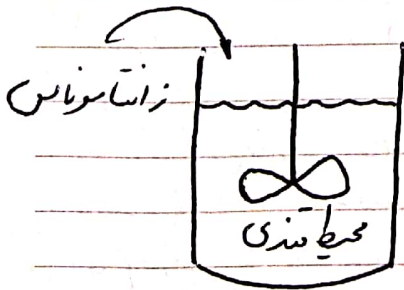 زانتاموناس
محیط قندی